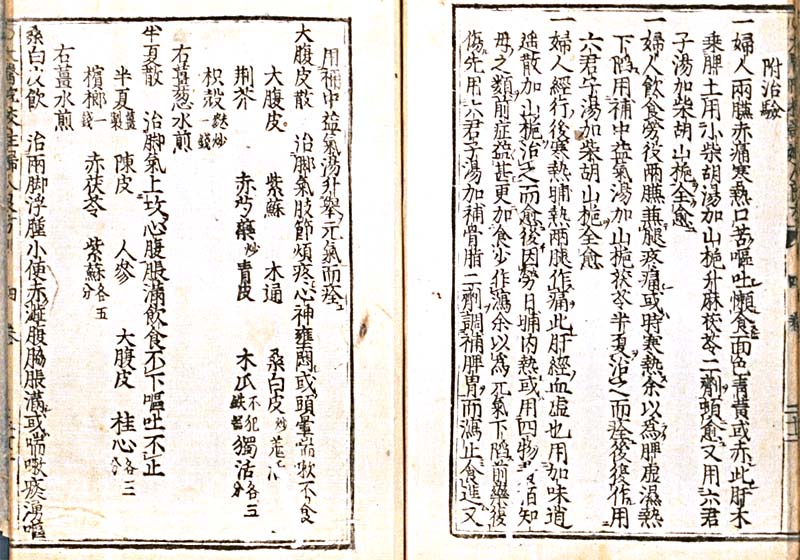 附治驗
一婦人兩臁赤痛寒熱口苦嘔吐懶食面色青黃或赤此肝木
乘脾土用小柴胡湯加山梔升麻茯苓二劑頓愈又用六君
子湯加柴胡山梔全愈
一婦人飲食勞役兩臁兼腿疼痛或時寒熱余以爲脾虛濕熱
下陷用補中益氣湯加山梔茯苓半夏治之而痊後復作用
六君子湯加柴胡山梔全愈
一婦人經行後寒熱晡熱兩腿作痛此肝經血虛也用加味逍
遥散加山梔治之而愈後因勞日晡內熱或用四物知
母之類前症益甚更加食少作瀉余以爲元氣下陷前藥復
傷先用六君子湯加補骨脂二劑調補脾胃而瀉止食進又
用補中益氣湯升舉元氣而痊
大腹皮散 治脚氣肢節煩疼心神壅悶或頭暈喘嗽不食
大腹皮 紫蘇 木通 桑白皮炒
荆芥 赤芍藥炒 青皮 木瓜不犯鐵器 獨活各三分
枳殼麩炒一錢
右薑葱水煎
半夏散 治脚氣上攻心腹脹滿飲食不下嘔吐不止
半夏薑製 陳皮 人參 大腹皮 桂心各三分
檳榔一錢 赤茯苓 紫蘇各五分
右薑水煎
桑白皮飲 治兩脚浮腫小便赤澁腹脇脹滿或喘嗽痰涌嘔